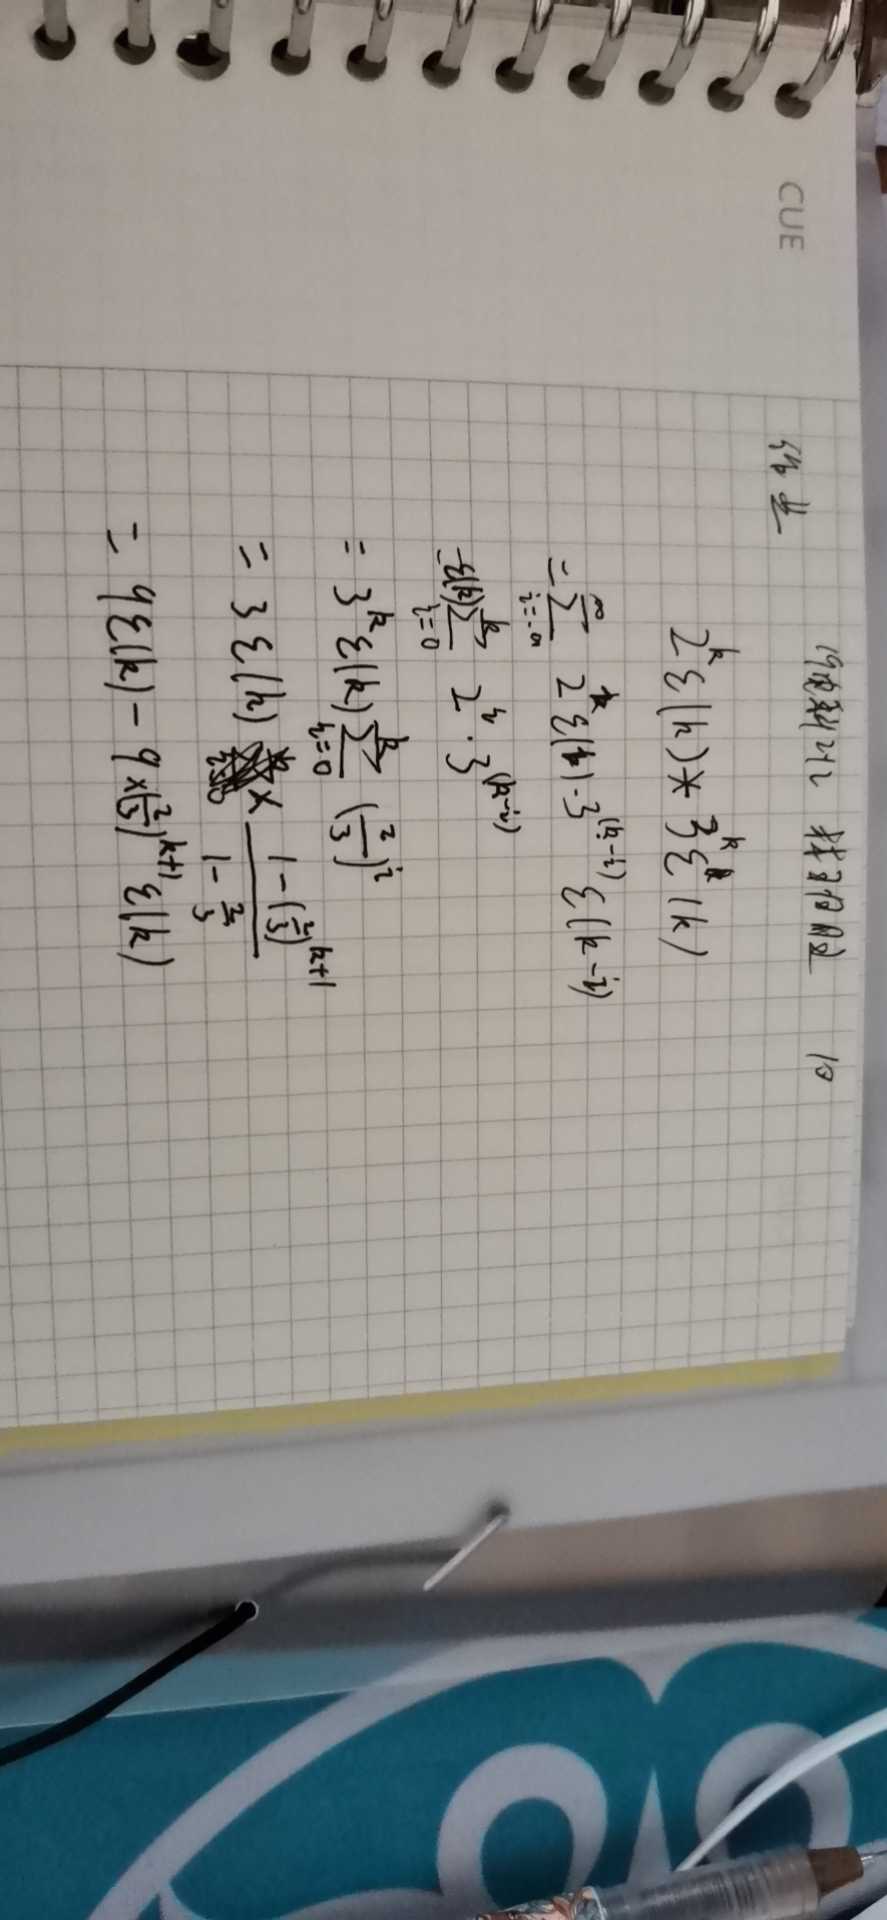 CUE
10
作业
2^k ε(k) * 3^k ε(k)
= ∑_{i=-∞}^{∞} 2^i ε(i) · 3^{(k-i)} ε(k-i)
= ε(k) ∑_{i=0}^{k} 2^i · 3^{(k-i)}
= 3^k ε(k) ∑_{i=0}^{k} (2/3)^i
= 3 ε(k) × \frac{1-(2/3)^{k+1}}{1-2/3}
= 9ε(k) - 9×(2/3)^{k+1} ε(k)